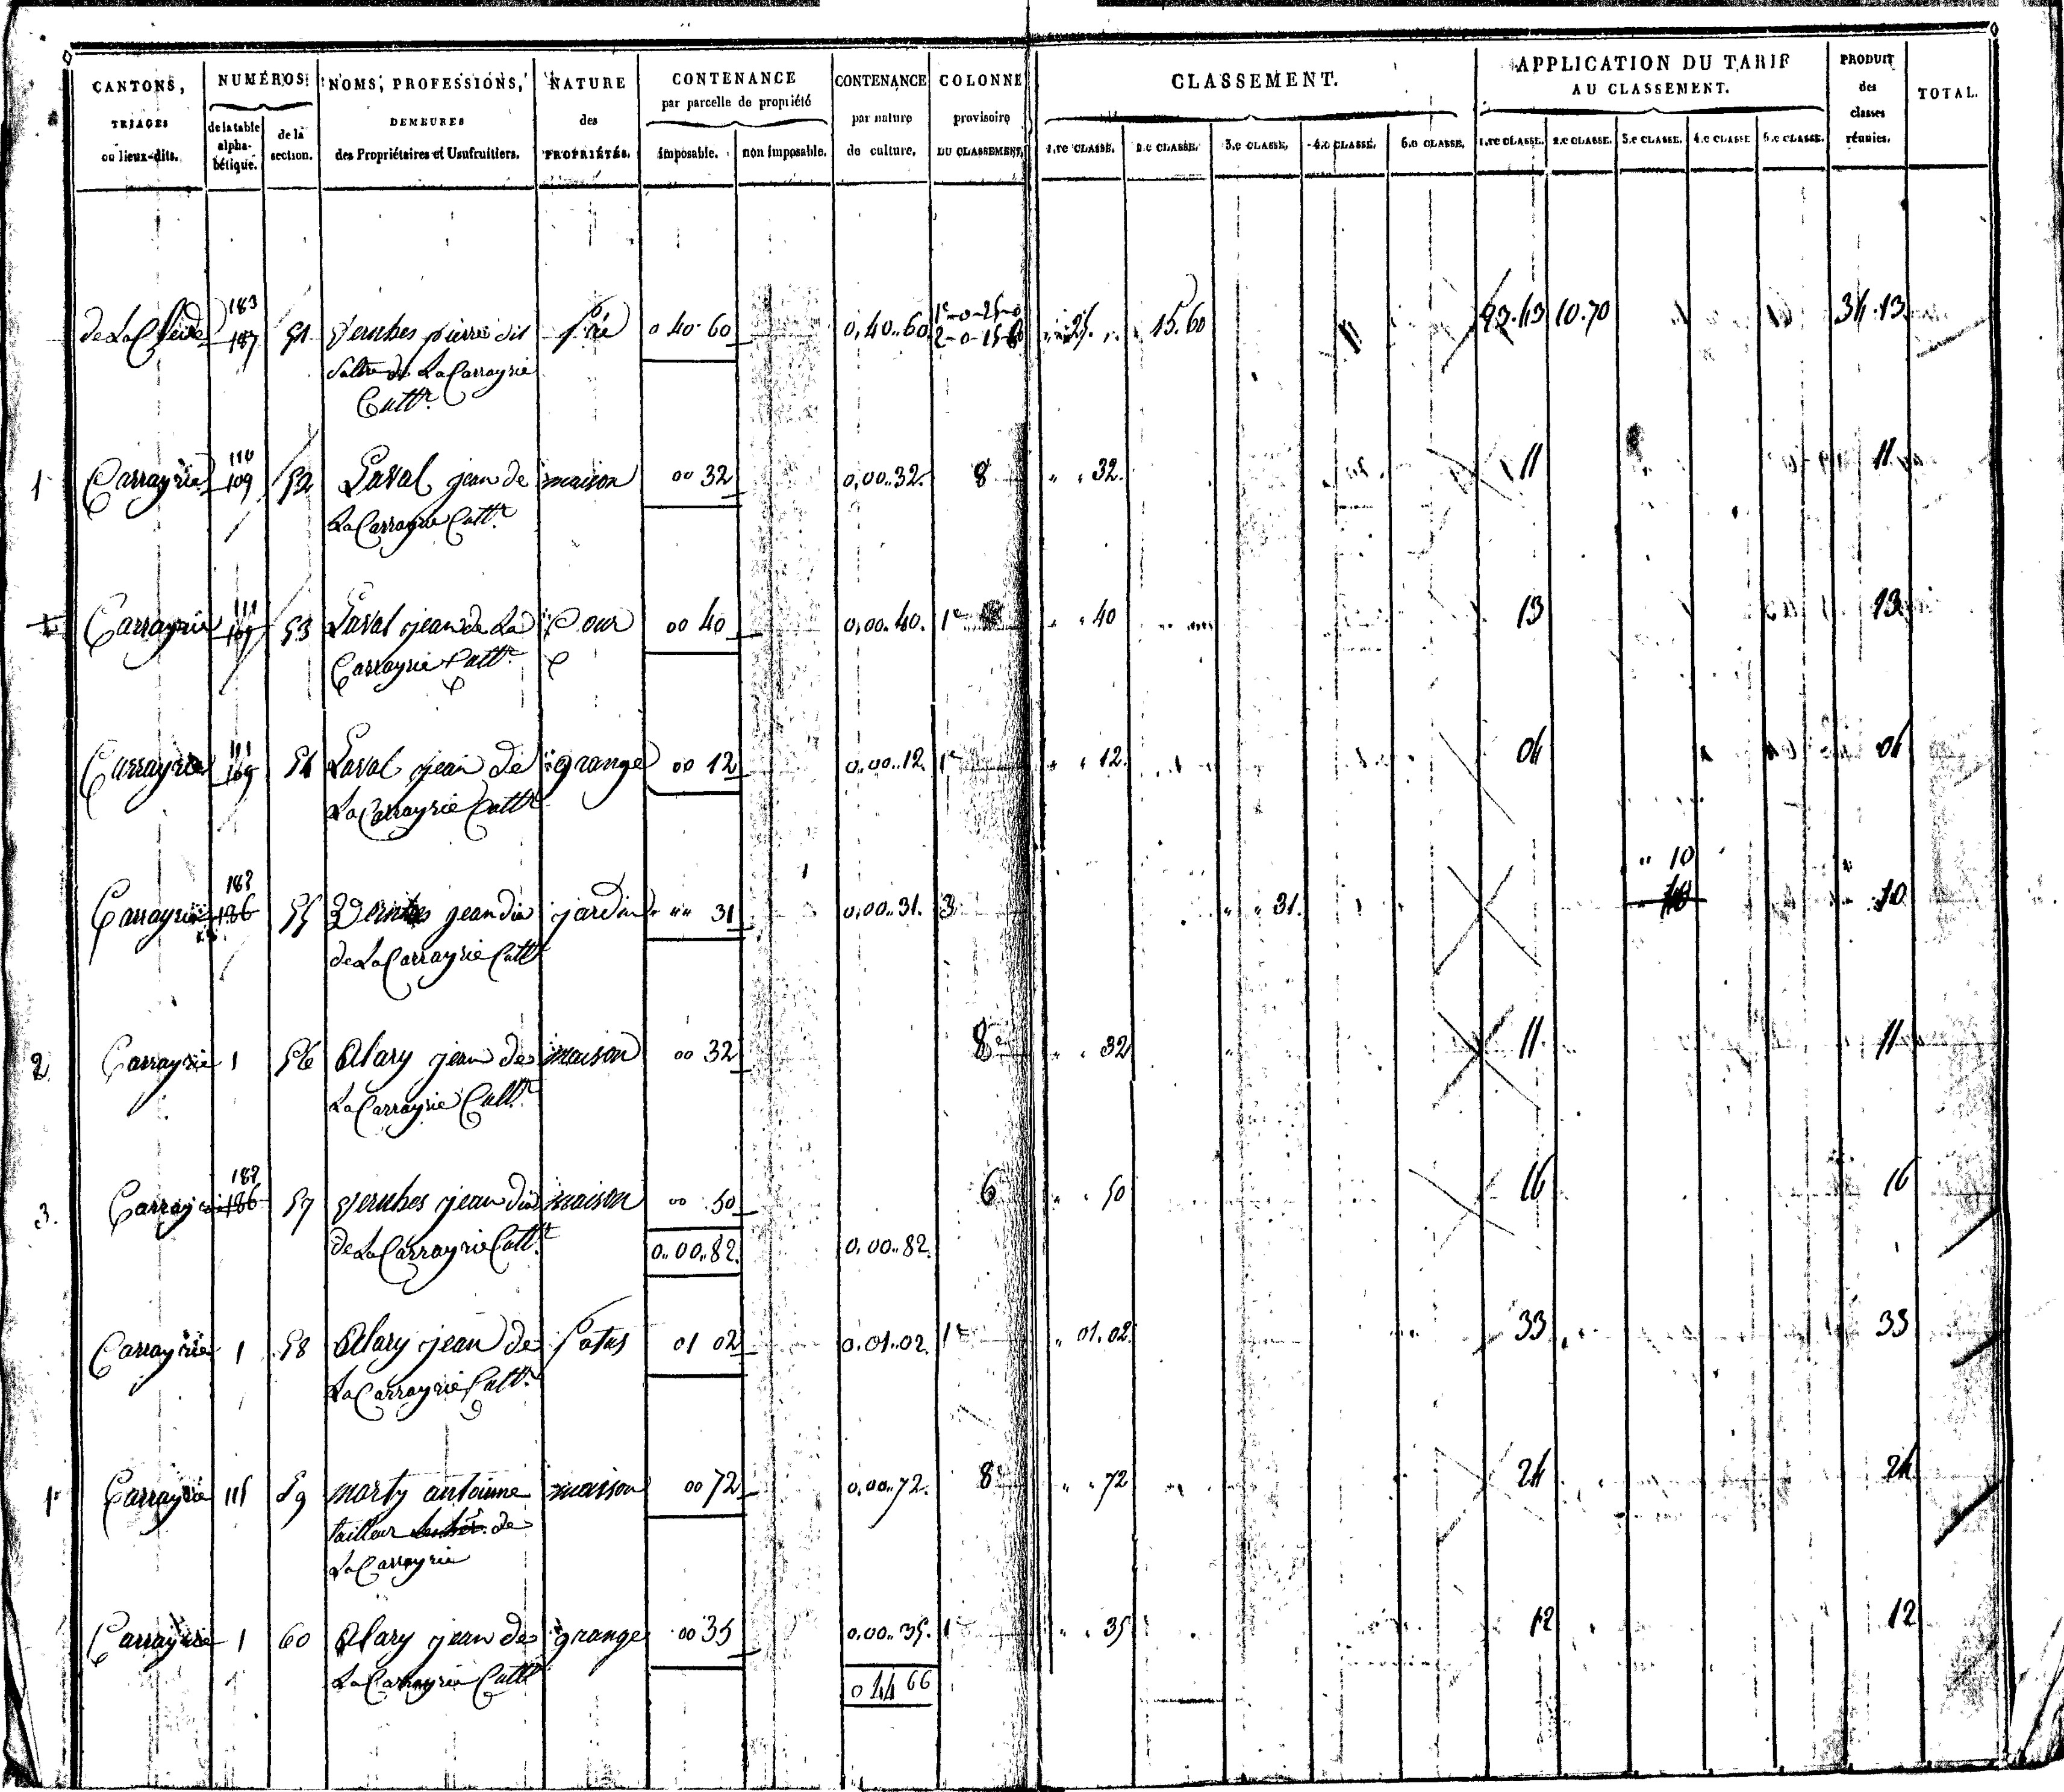 CANTONS, TRIAGES ou lieux-dits.
NUMÉROS
de la table alphabétique.
de la section.
NOMS, PROFESSIONS, DEMEURES des Propriétaires et Usufruitiers.
NATURE des PROPRIÉTÉS.
CONTENANCE par parcelle de propriété
imposable. non imposable.
CONTENANCE par nature de culture.
COLONNE provisoire DU CLASSEMENT.
CLASSEMENT.
1.re CLASSE. 2.e CLASSE. 3.e CLASSE. 4.e CLASSE. 5.e CLASSE.
APPLICATION DU TARIF AU CLASSEMENT.
1.re CLASSE. 2.e CLASSE. 3.e CLASSE. 4.e CLASSE 5.e CLASSE.
PRODUIT des classes réunies.
TOTAL.
183
de La 187 51 pierre dit pré 0 40 60 0,40..60 1e-0-25-0 25 15.60 10.70 34.13
2-0-15-60
de La Carrayrie
Cultr
110
1 Carrayrie 109 52 Laval jean de maison 00 32 0,00..32. 8 " " 32. 11 11
La Carrayrie Cultr
111
Carrayrie 109 53 Laval jean de La Cour 00 40 0,00..40. 1e " " 40 13 13
Carrayrie Cultr
111
Carrayrie 109 54 Laval jean de grange 00 12 0,00..12. 1e " " 12. 04 04
La Carrayrie Cultr
182 " 10
Carrayrie 186 55 jean jardin " "" 31 0,00..31. 3 " " 31. 10 10
de La Carrayrie Cultr
2 Carrayrie 1 56 Alary jean de maison 00 32 8e " " 32 11 11
La Carrayrie Cultr
182
3. Carrayrie 186 57 jean maison 00 50 6 " " 50 16 16
de La Carrayrie Cultr 0..00..82. 0,00..82.
Carrayrie 1 58 Alary jean de Patus 01 02 0..01..02. 1e " 01.02 33 33
La Carrayrie Cultr
1 Carrayrie 115 59 marty antoine maison 00 72 0,00..72. 8e " " 72 24 24
tailleur de
La Carrayrie
Carrayrie 1 60 Alary jean de grange 00 35 0,00..35. 1e " " 35 12 12
La Carrayrie Cultr 0 44 66